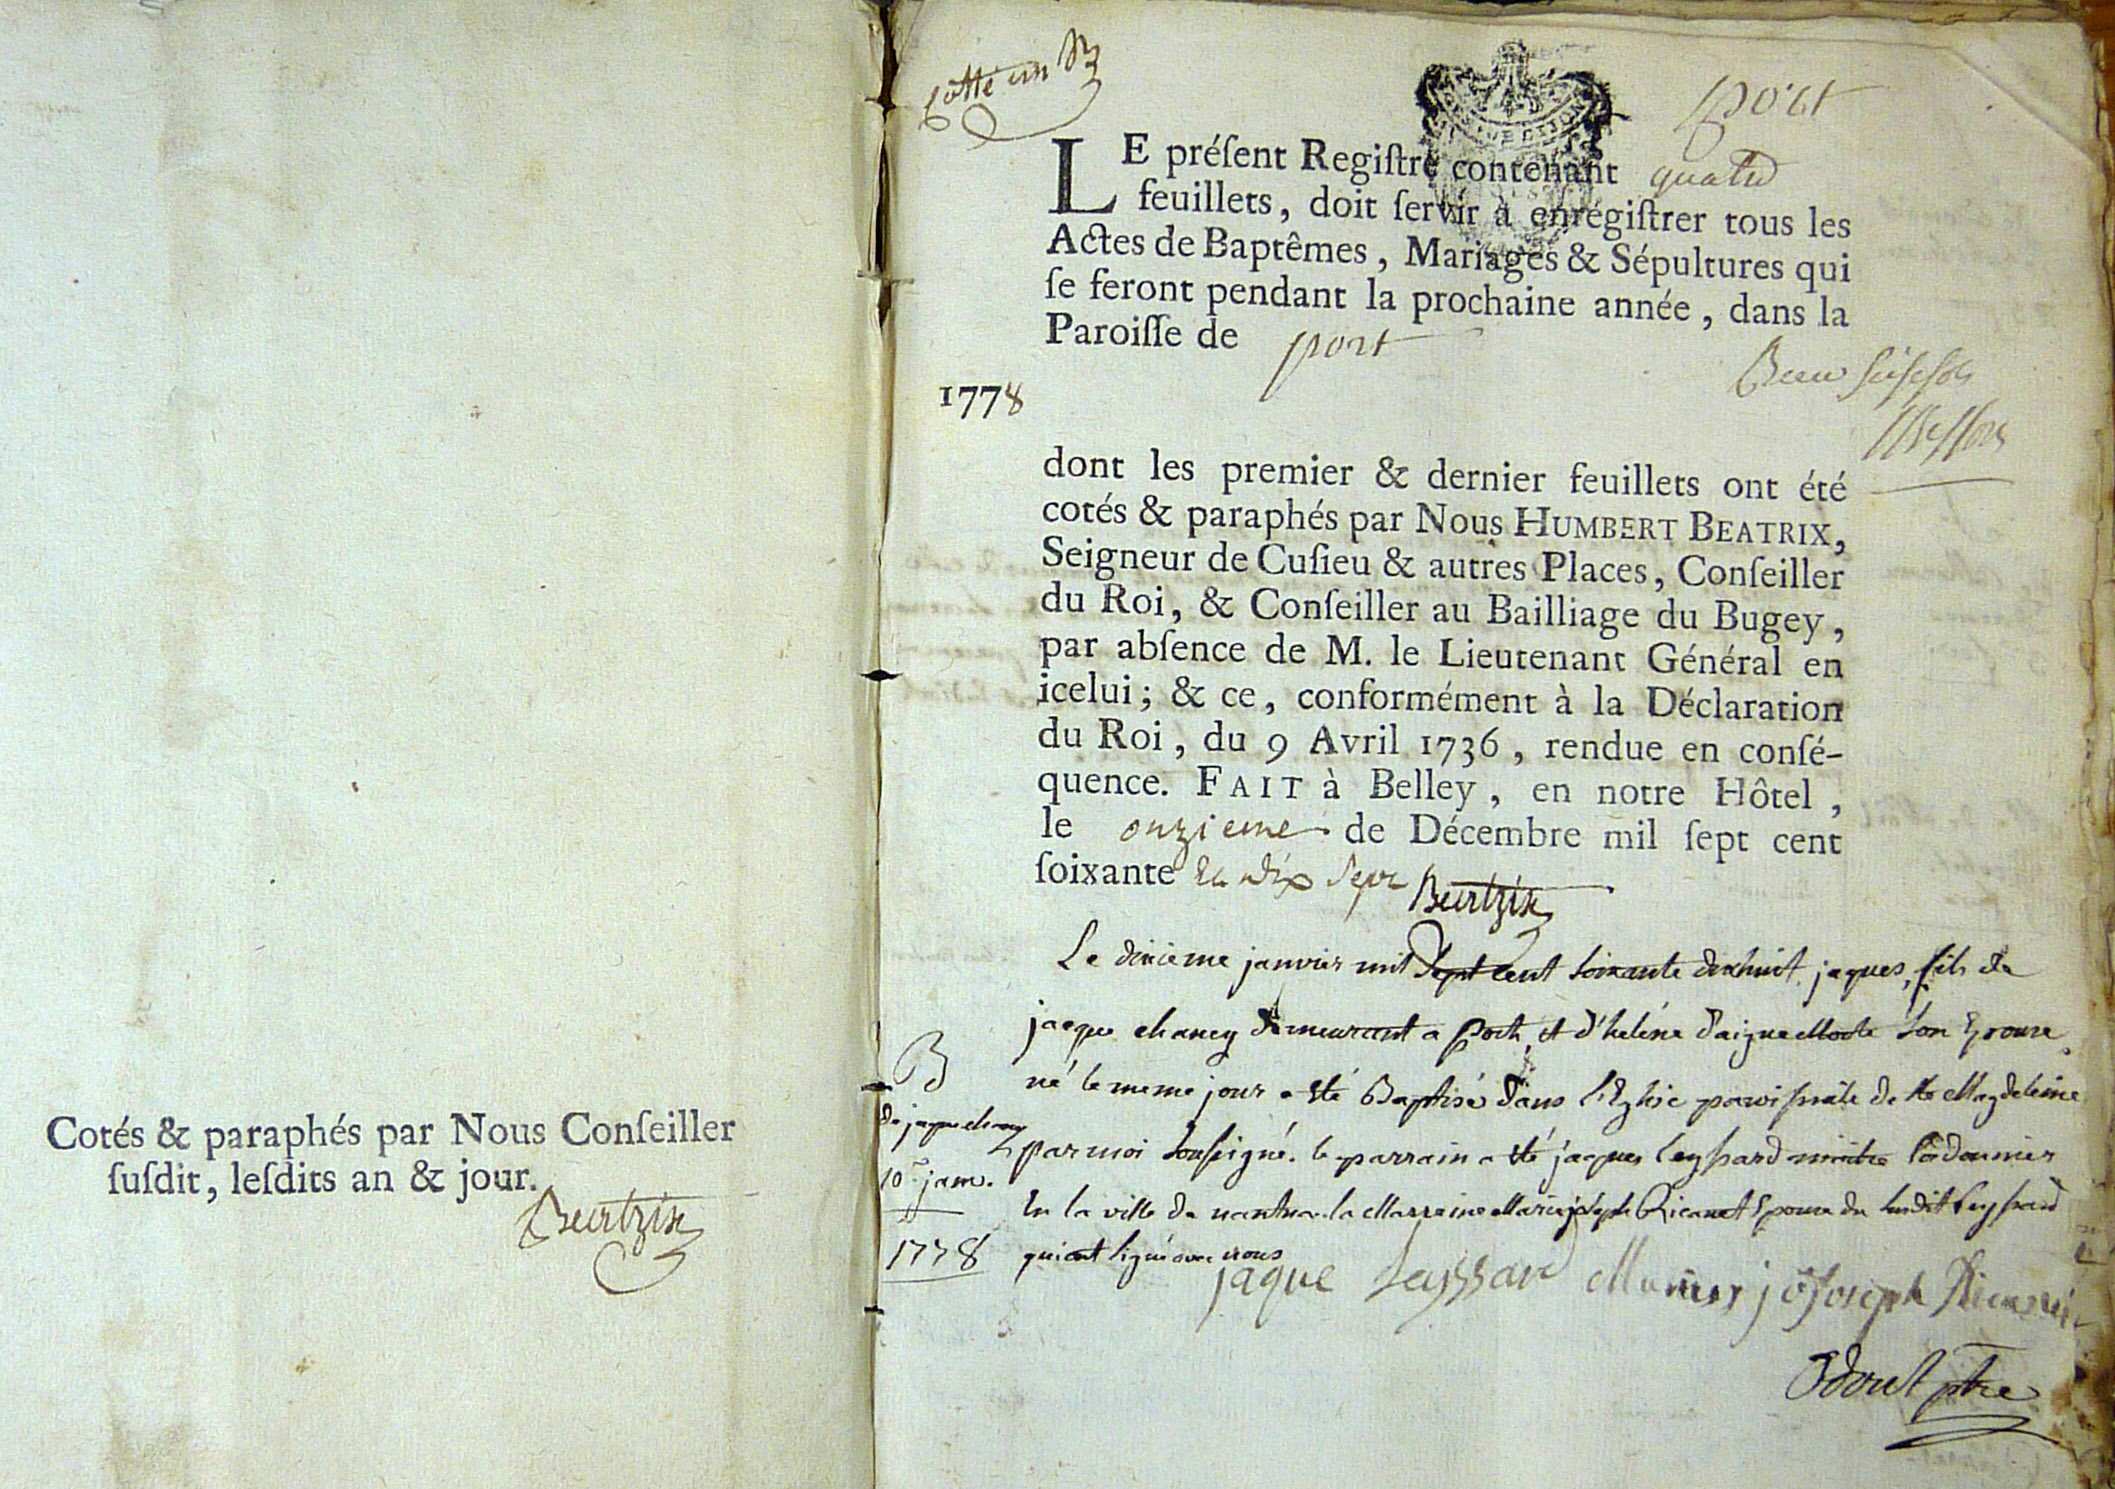 Cotés & paraphés par Nous Conſeiller
ſuſdit, leſdits an & jour.
Beatrix
Cotté un
port
LE préſent Regiſtre contenant quatre
feuillets, doit ſervir à enrégiſtrer tous les
Actes de Baptêmes, Mariages & Sépultures qui
ſe feront pendant la prochaine année, dans la
Paroiſſe de port
1778
dont les premier & dernier feuillets ont été
cotés & paraphés par Nous HUMBERT BEATRIX,
Seigneur de Cuſieu & autres Places, Conſeiller
du Roi, & Conſeiller au Bailliage du Bugey,
par abſence de M. le Lieutenant Général en
icelui; & ce, conformément à la Déclaration
du Roi, du 9 Avril 1736, rendue en conſé-
quence. FAIT à Belley, en notre Hôtel,
le onzieme de Décembre mil ſept cent
ſoixante et dix sept Beatrix
Le dixieme janvier mil sept cent soixante dixhuit jaques, fils de
jacque chaney demeurant a port, et d'heléne d'aiguemorte son Epouse
né le meme jour a eté Baptisé dans l'Eglise paroissiale de ste Magdeleine
par moi soussigné. le parrain a eté jacques leyssard maitre cordonnier
En la ville de nantua la Marraine Marie joseph Ricanet Epouse du susdit leyssard
qui ont signé avec nous
B
de jaque chaney
10e janv.
1778
jaque Leyssard joseph
ptre